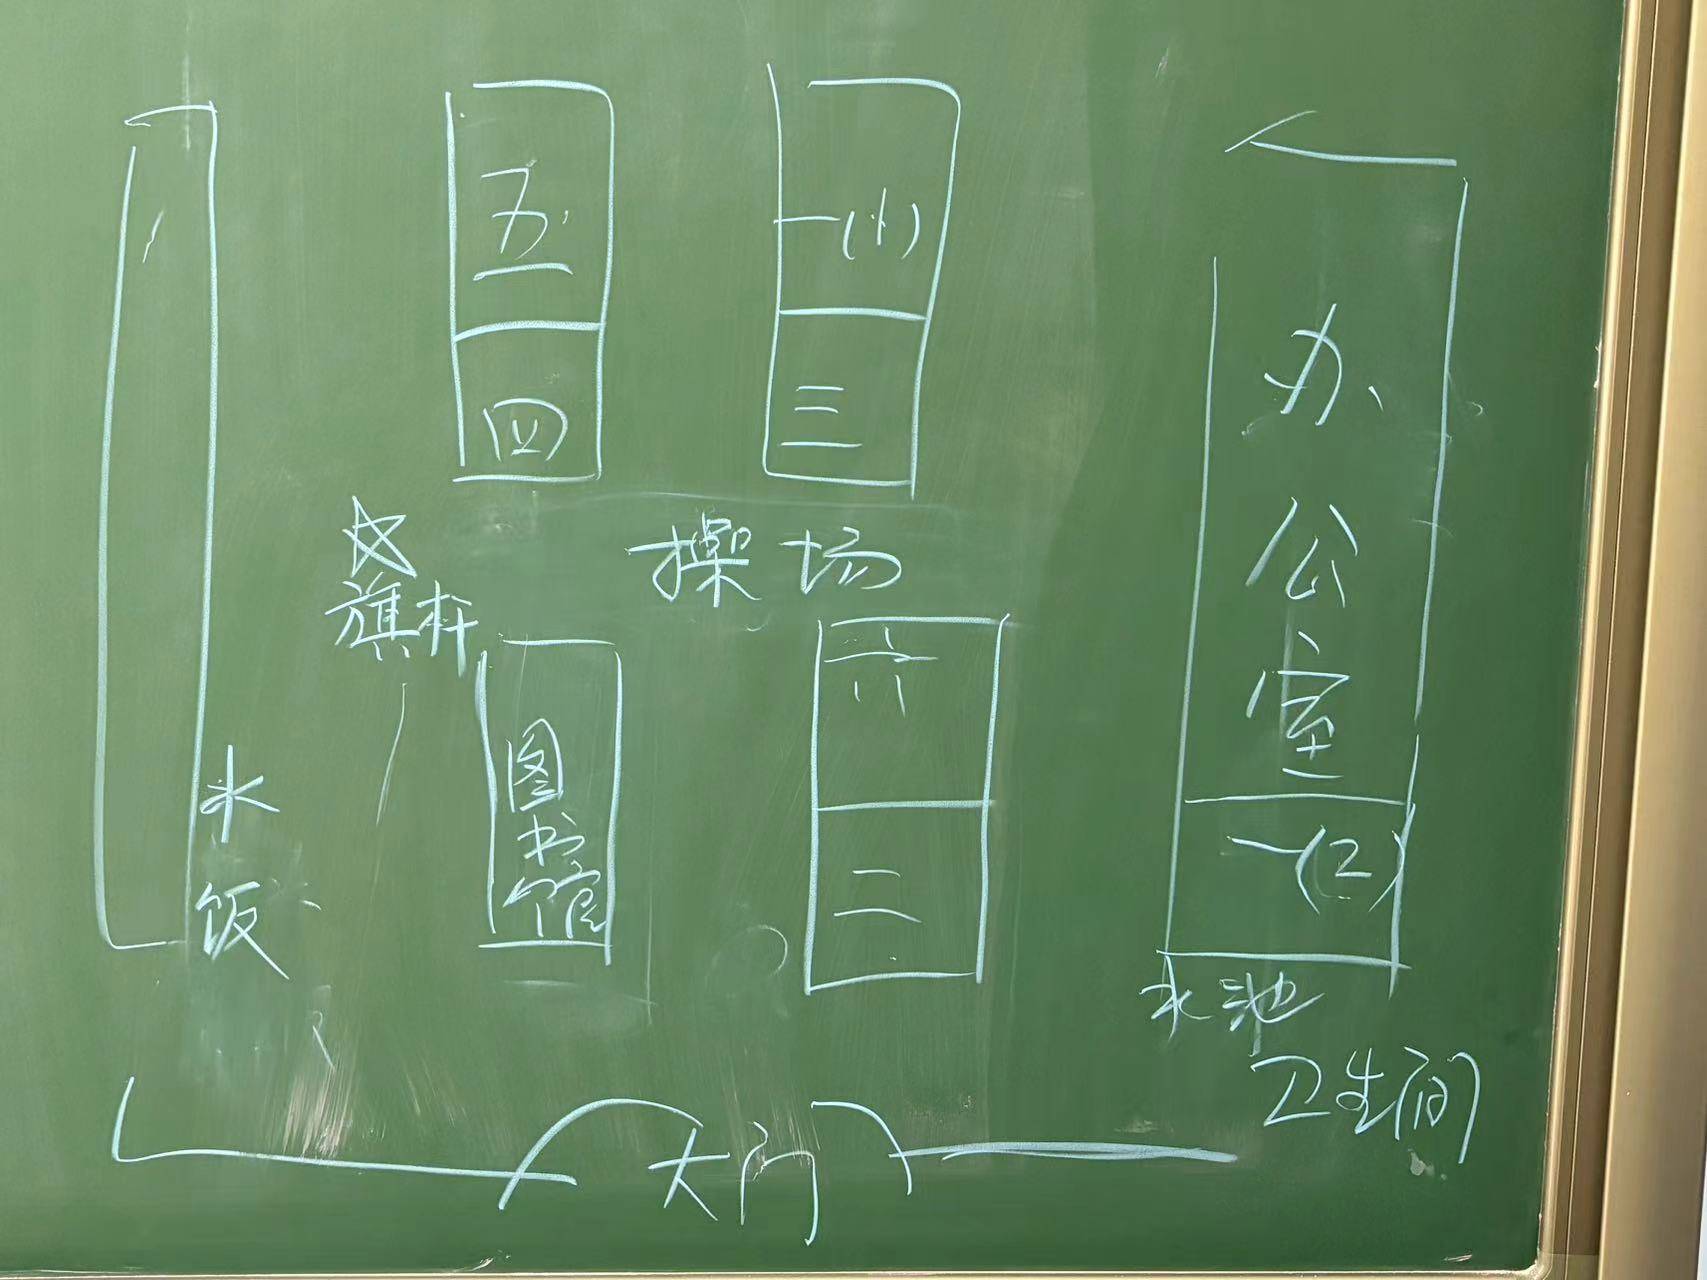 五
一(1)
四
三
办公室
操场
旗杆
六
图书馆
水
饭
二
一(2)
水池
卫生间
大门